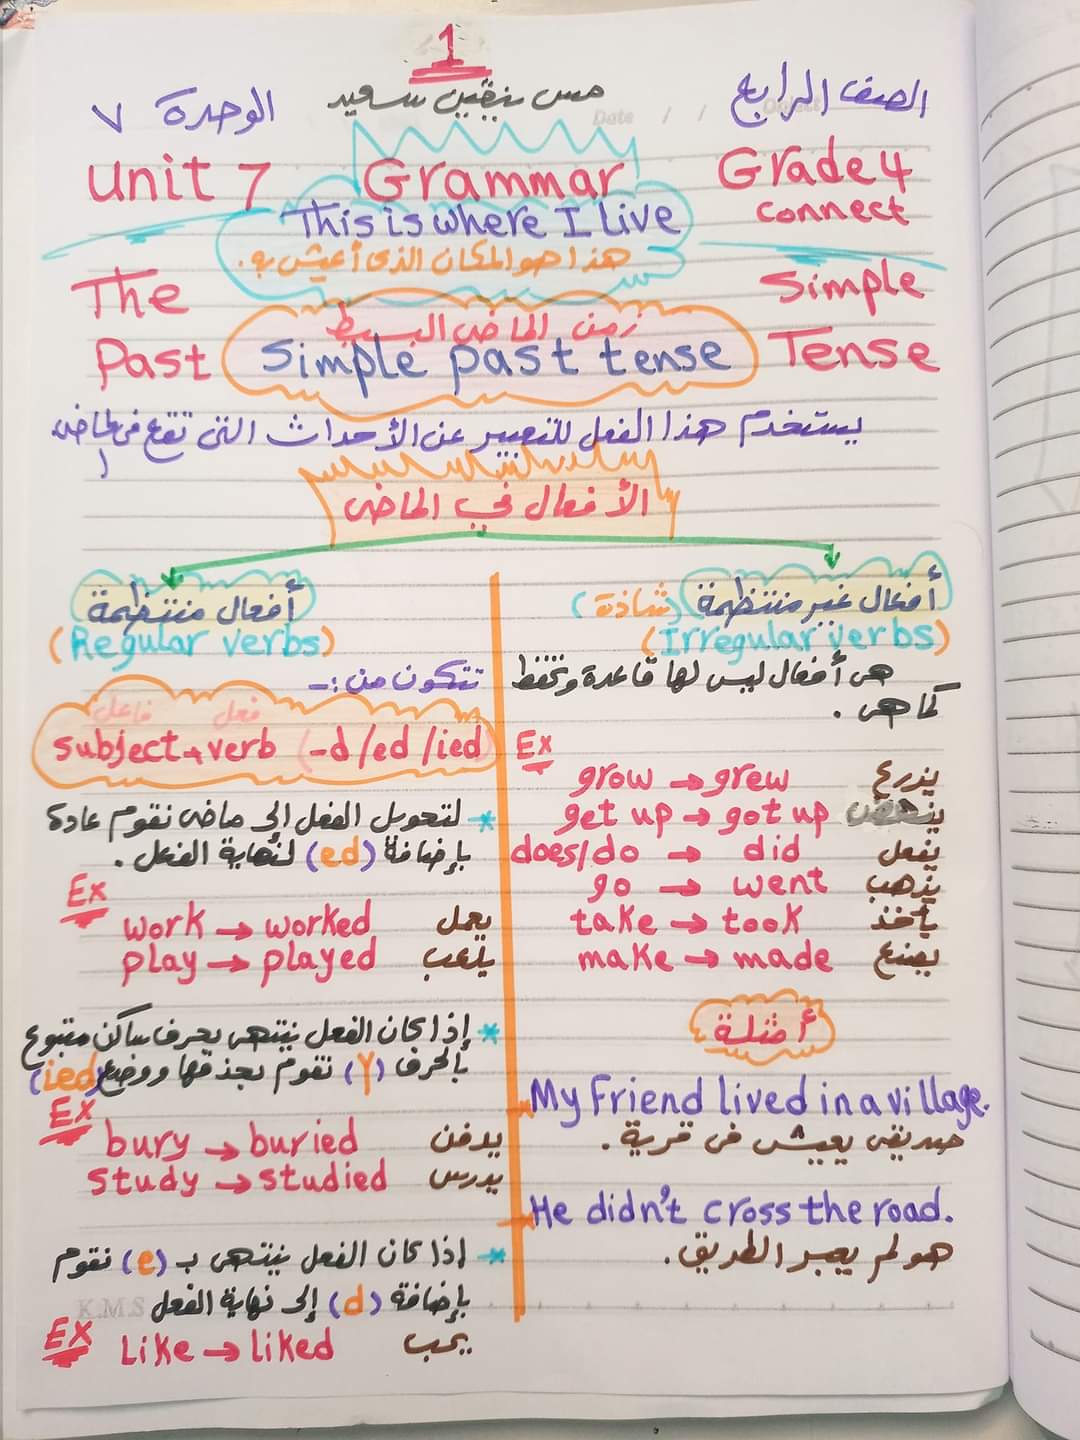 1
الصف الرابع
مس نيڤين سعيد
الوحدة ٧
Unit 7
Grammar
Grade 4
connect
This is where I live
هذا هو المكان الذى أعيش به.
The
Simple
زمن الماضى البسيط
Past
Simple past tense
Tense
يستخدم هذا الفعل للتعبير عن الأحداث التى تقع فى الماضى
الأفعال في الماضى
أفعال منتظمة
(Regular verbs)
تتكون من :-
فاعل فعل
subject + verb (-d/ed/ied)
* لتحويل الفعل إلى ماضى نقوم عادة
بإضافة (ed) لنهاية الفعل.
Ex
work → worked يعمل
play → played يلعب
* إذا كان الفعل ينتهى بحرف ساكن متبوع
بالحرف (y) نقوم بحذفها ووضع (ied)
Ex
bury → buried يدفن
study → studied يدرس
* إذا كان الفعل ينتهى بـ (e) نقوم
بإضافة (d) إلى نهاية الفعل
K.M.S
Ex
Like → liked يحب
أفعال غير منتظمة (شاذة)
(Irregular verbs)
هى أفعال ليس لها قاعدة وتحفظ
كما هى.
Ex
grow → grew يزرع
get up → got up ينهض
does/do → did يفعل
go → went يذهب
take → took يأخذ
make → made يصنع
أمثلة
My Friend lived in a village.
صديقى يعيش فى قرية.
He didn't cross the road.
هو لم يعبر الطريق.